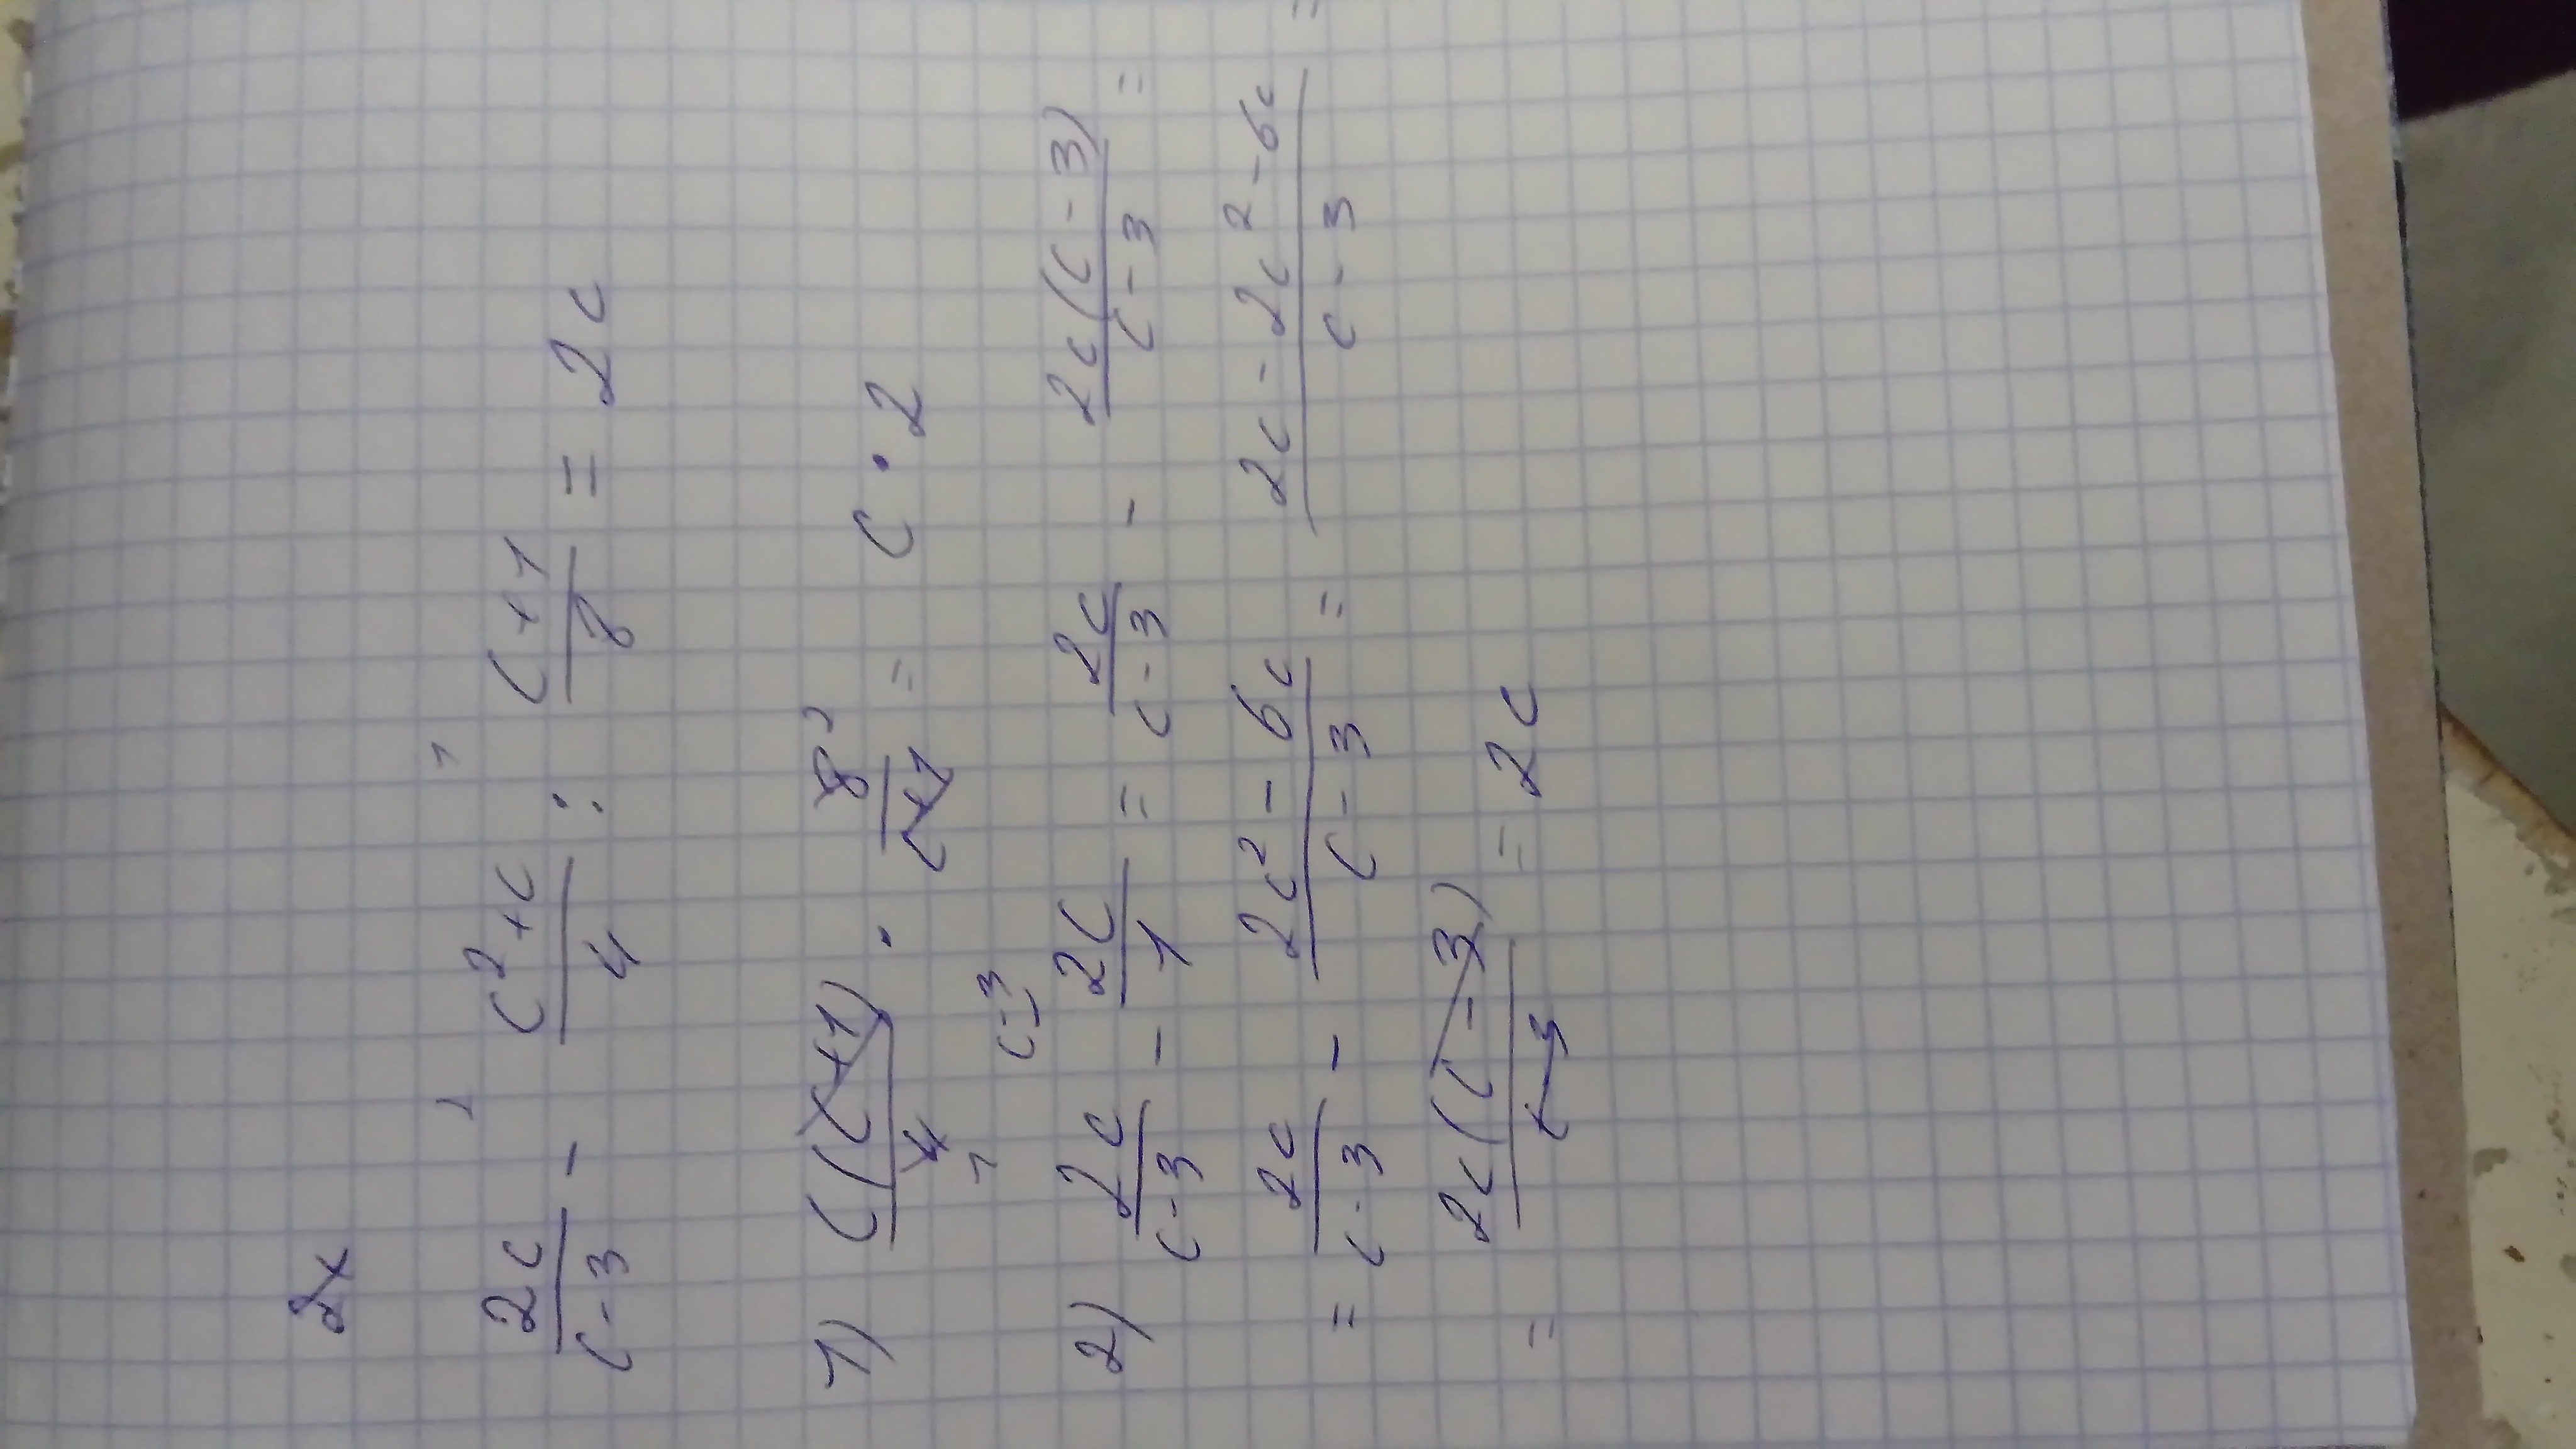 2x
2c/(c-3) - (c²+c)/4 : (c+1)/8 = 2c
1) c(c+1)/4 · 8/(c+1) = c · 2
2) 2c/(c-3) - 2c/1 = 2c/(c-3) - 2c(c-3)/(c-3) =
= 2c/(c-3) - (2c²-6c)/(c-3) = (2c-2c²-6c)/(c-3) =
= 2c(c-3)/(c-3) = 2c